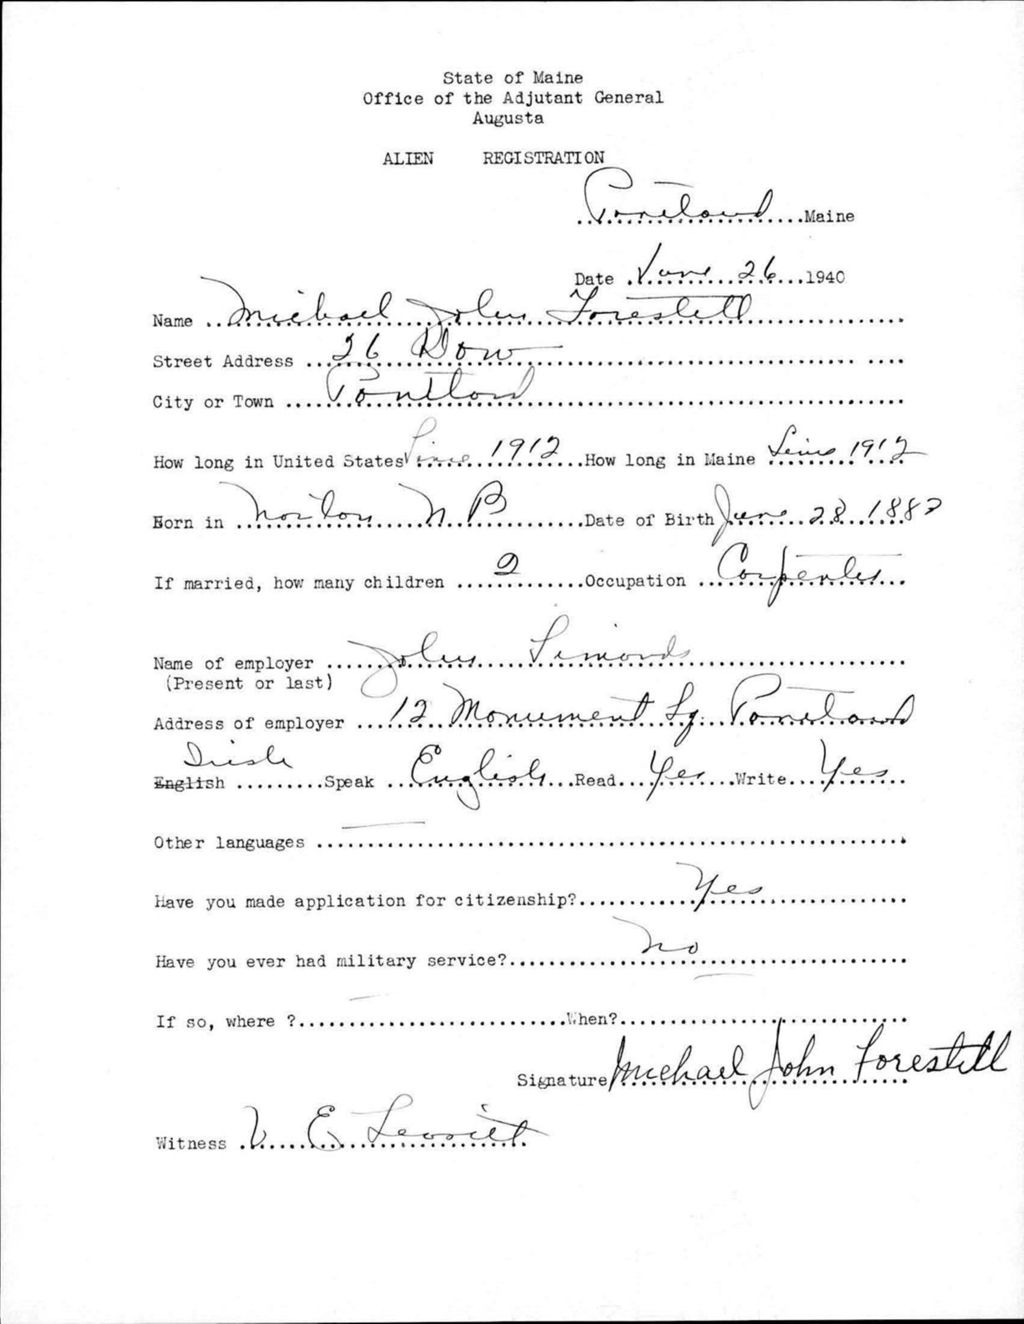 State of Maine
Office of the Adjutant General
Augusta
ALIEN REGISTRATION
Portland Maine
Date June 26 1940
Name Michael John Forestell
Street Address 26 Dow
City or Town Portland
How long in United States Since 1912 How long in Maine Since 1912
Born in N B Date of Birth June 28 1882
If married, how many children 2 Occupation Carpenter
Name of employer John Simonds
(Present or last)
Address of employer 12 Monument Sq. Portland
Irish
English Speak English Read Yes Write Yes
Other languages —
Have you made application for citizenship? Yes
Have you ever had military service? No
If so, where ? — When? —
Signature Michael John Forestell
Witness V E Leavitt